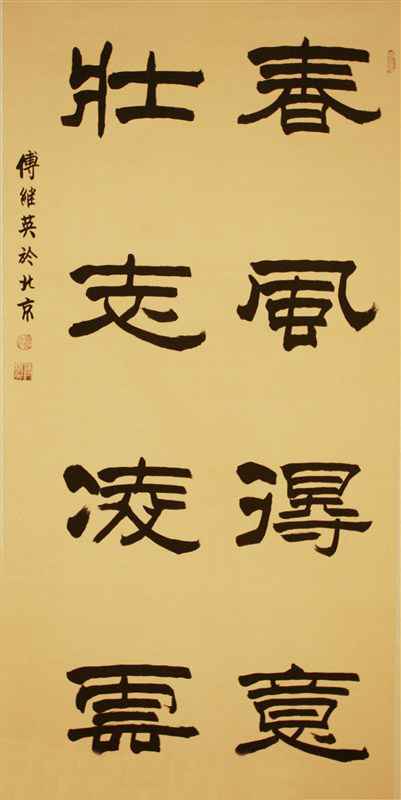 春風得意
壯志凌雲
傅維英於北京